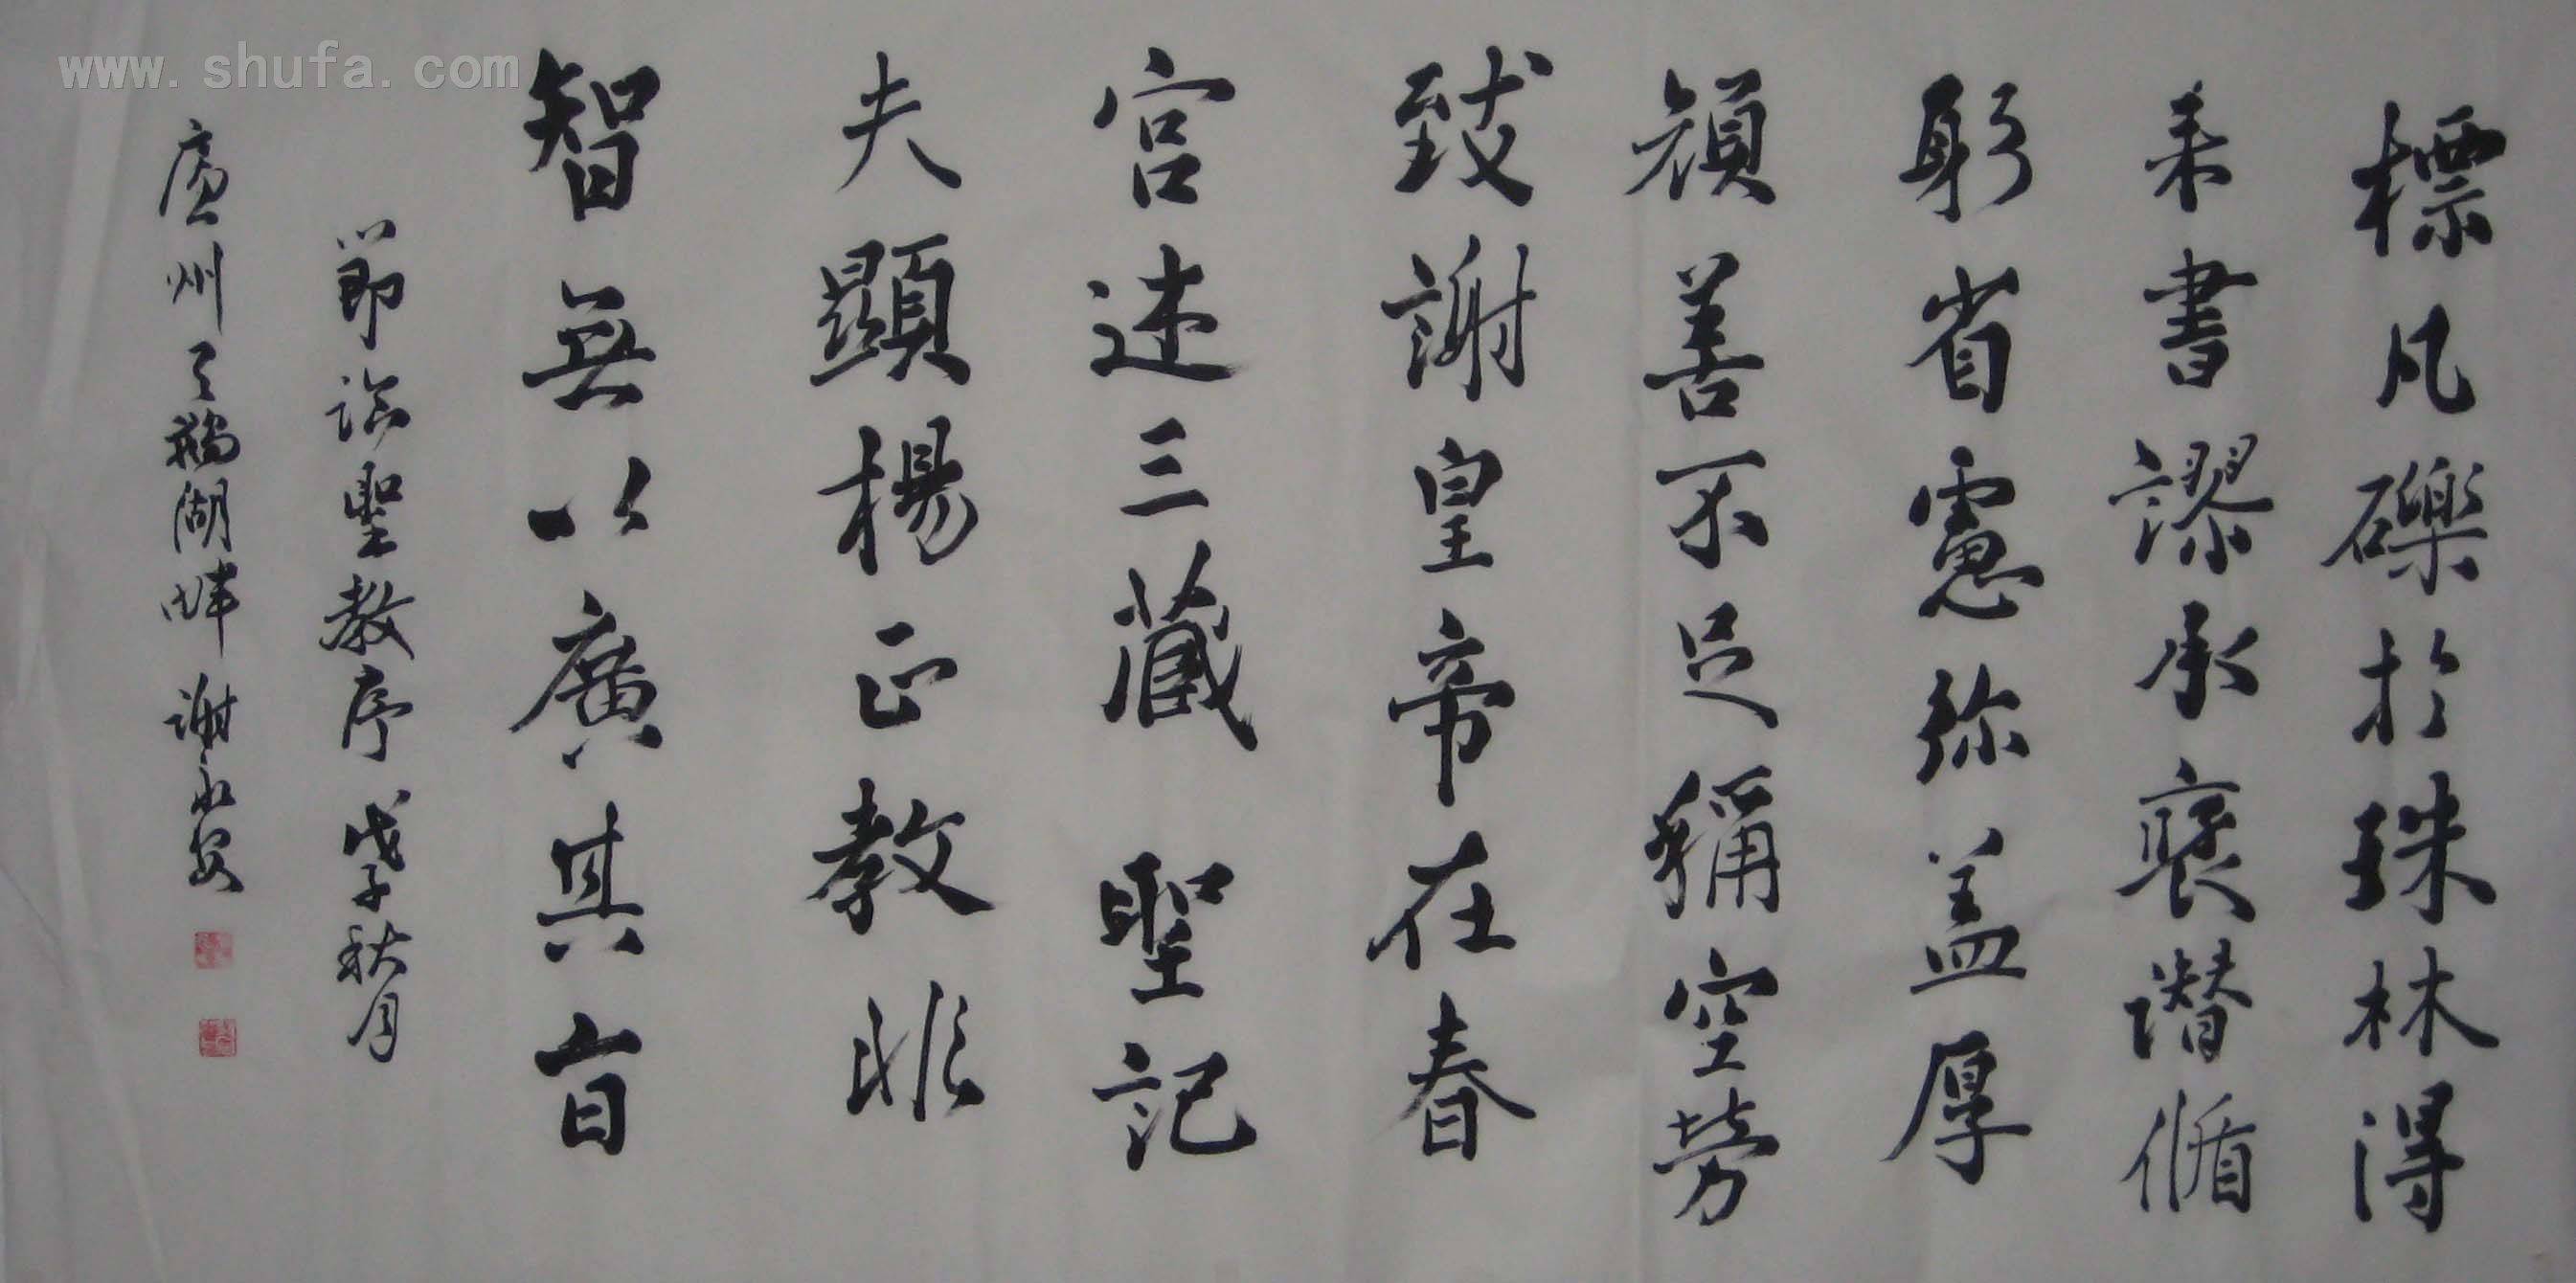 標凡礫於珠林得
来書謬承褒讃循
躬省慮弥益厚
顔善不足稱空勞
致謝皇帝在春
宫述三藏 聖記
夫顯揚正教非
智無以廣其旨
節臨聖教序 戊子秋月
廬州天鵝湖畔 謝永安
www.shufa.com